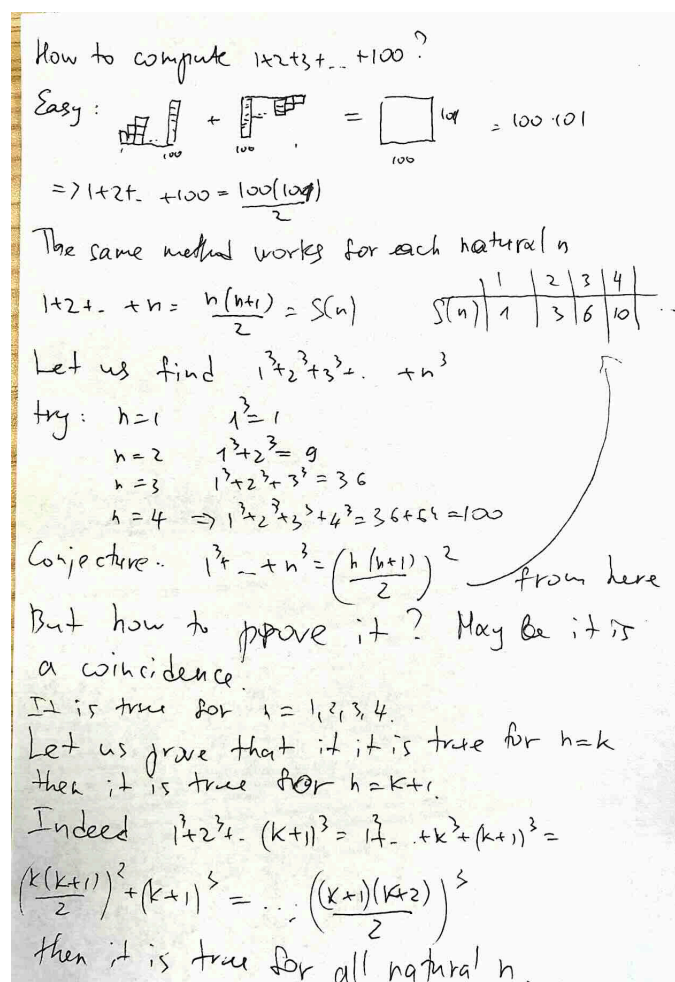 How to compute 1+2+3+...+100?
Easy: 100 + 100 = 100 101 = 100·101
=> 1+2+.. +100 = 100(101)/2
The same method works for each natural n
1+2+.. +n = n(n+1)/2 = S(n)
1 | 2 | 3 | 4
S(n) | 1 | 3 | 6 | 10 | ...
Let us find 1³+2³+3³+.. +n³
try: n=1 1³=1
n=2 1³+2³=9
n=3 1³+2³+3³=36
n=4 => 1³+2³+3³+4³=36+64=100
Conjecture.. 1³+...+n³=(n(n+1)/2)² from here
But how to prove it? May be it is
a coincidence.
It is true for n=1,2,3,4.
Let us prove that if it is true for n=k
then it is true for n=k+1.
Indeed 1³+2³+.. (k+1)³ = 1³+.. +k³+(k+1)³ =
(k(k+1)/2)²+(k+1)³ = ... ((k+1)(k+2)/2)³
then it is true for all natural n.